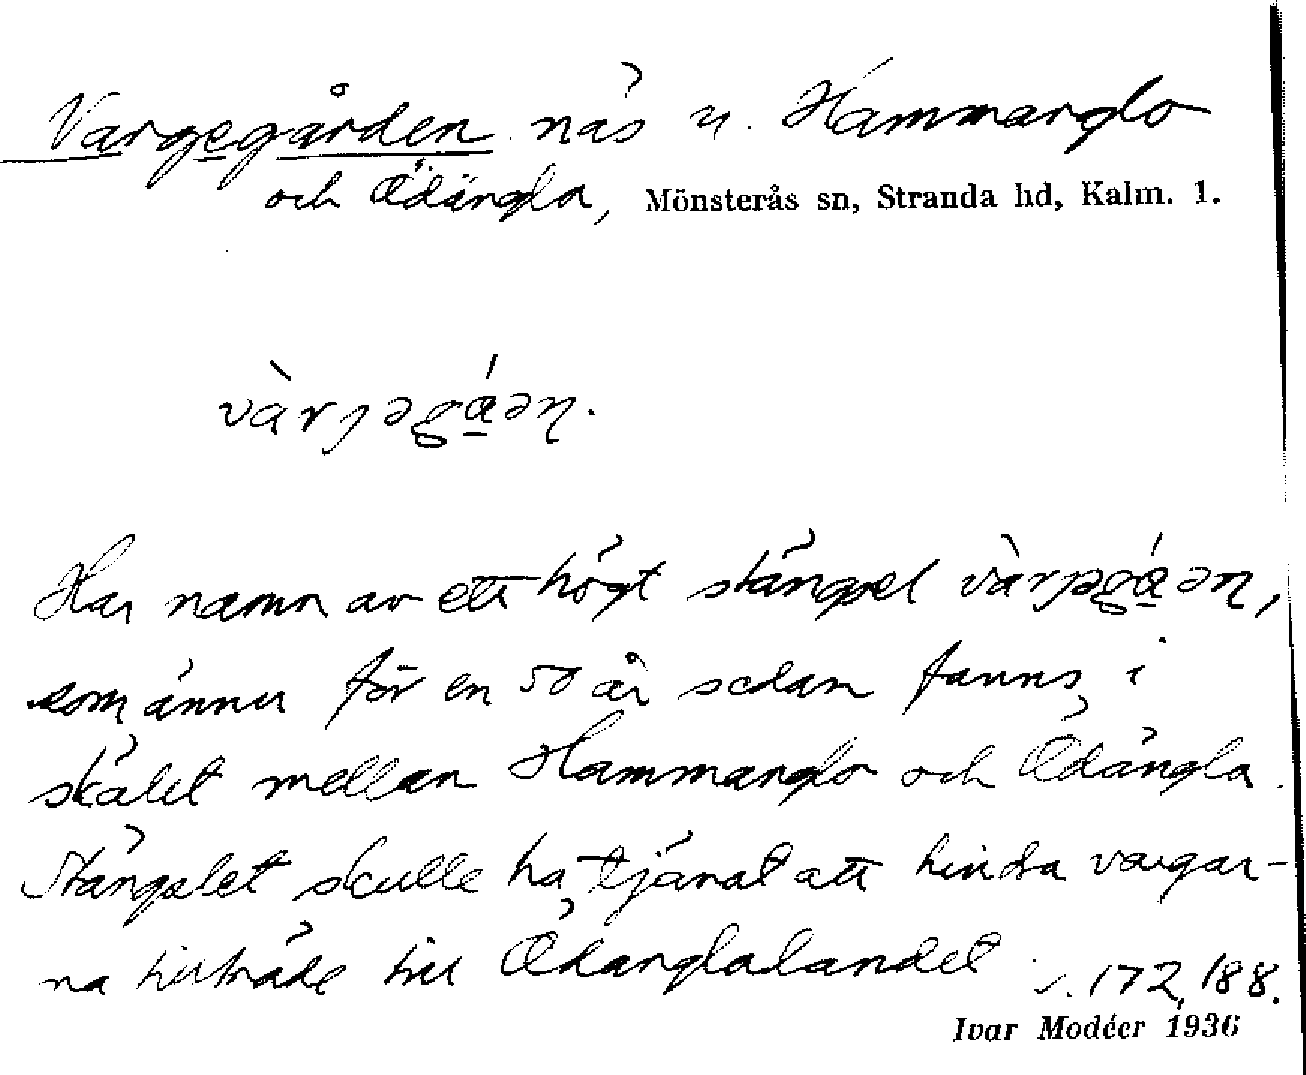 Vargegården näs u. Hammarglo
och Ödängla, Mönsterås sn, Stranda hd, Kalm. l.
Har namn av ett högt stängsel
som ännu för en 50 år sedan fanns i
skälet mellan Hammarglo och Ödängla.
Stängslet skulle ha tjänat att hindra vargar-
na tillträde till Ödänglalandet s. 172, 188.
Ivar Modéer 1936